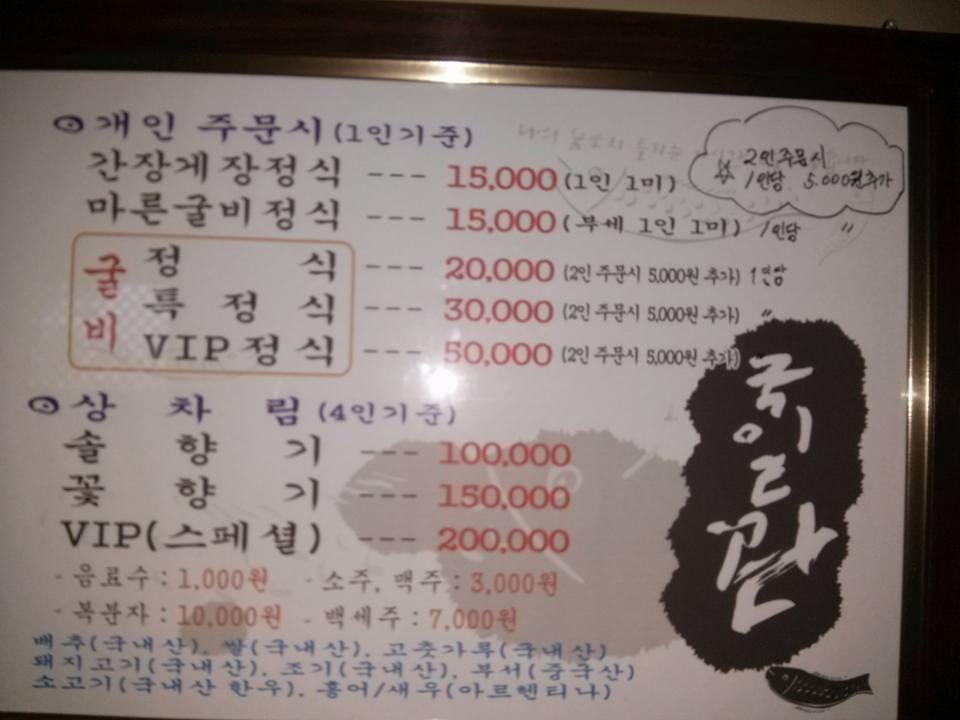 개인 주문시 (1인기준)
간장게장정식 --- 15,000 (1인 1미)
☆ 2인주문시
1인당 5.000원추가
마른굴비정식 --- 15,000 (부세 1인 1미) 1인당 "
굴비
정식 --- 20,000 (2인 주문시 5,000원 추가) 1인당
특정식 --- 30,000 (2인 주문시 5,000원 추가) "
VIP정식 --- 50,000 (2인 주문시 5,000원 추가)
상차림 (4인기준)
솔향기 --- 100,000
꽃향기 --- 150,000
VIP(스페셜) --- 200,000
- 음료수 : 1,000원 - 소주, 맥주 : 3,000원
- 복분자 : 10,000원 - 백세주 : 7,000원
배추(국내산), 쌀(국내산), 고춧가루(국내산)
돼지고기(국내산), 조기(국내산), 부서(중국산)
소고기(국내산 한우), 홍어/새우(아르헨티나)
국일관